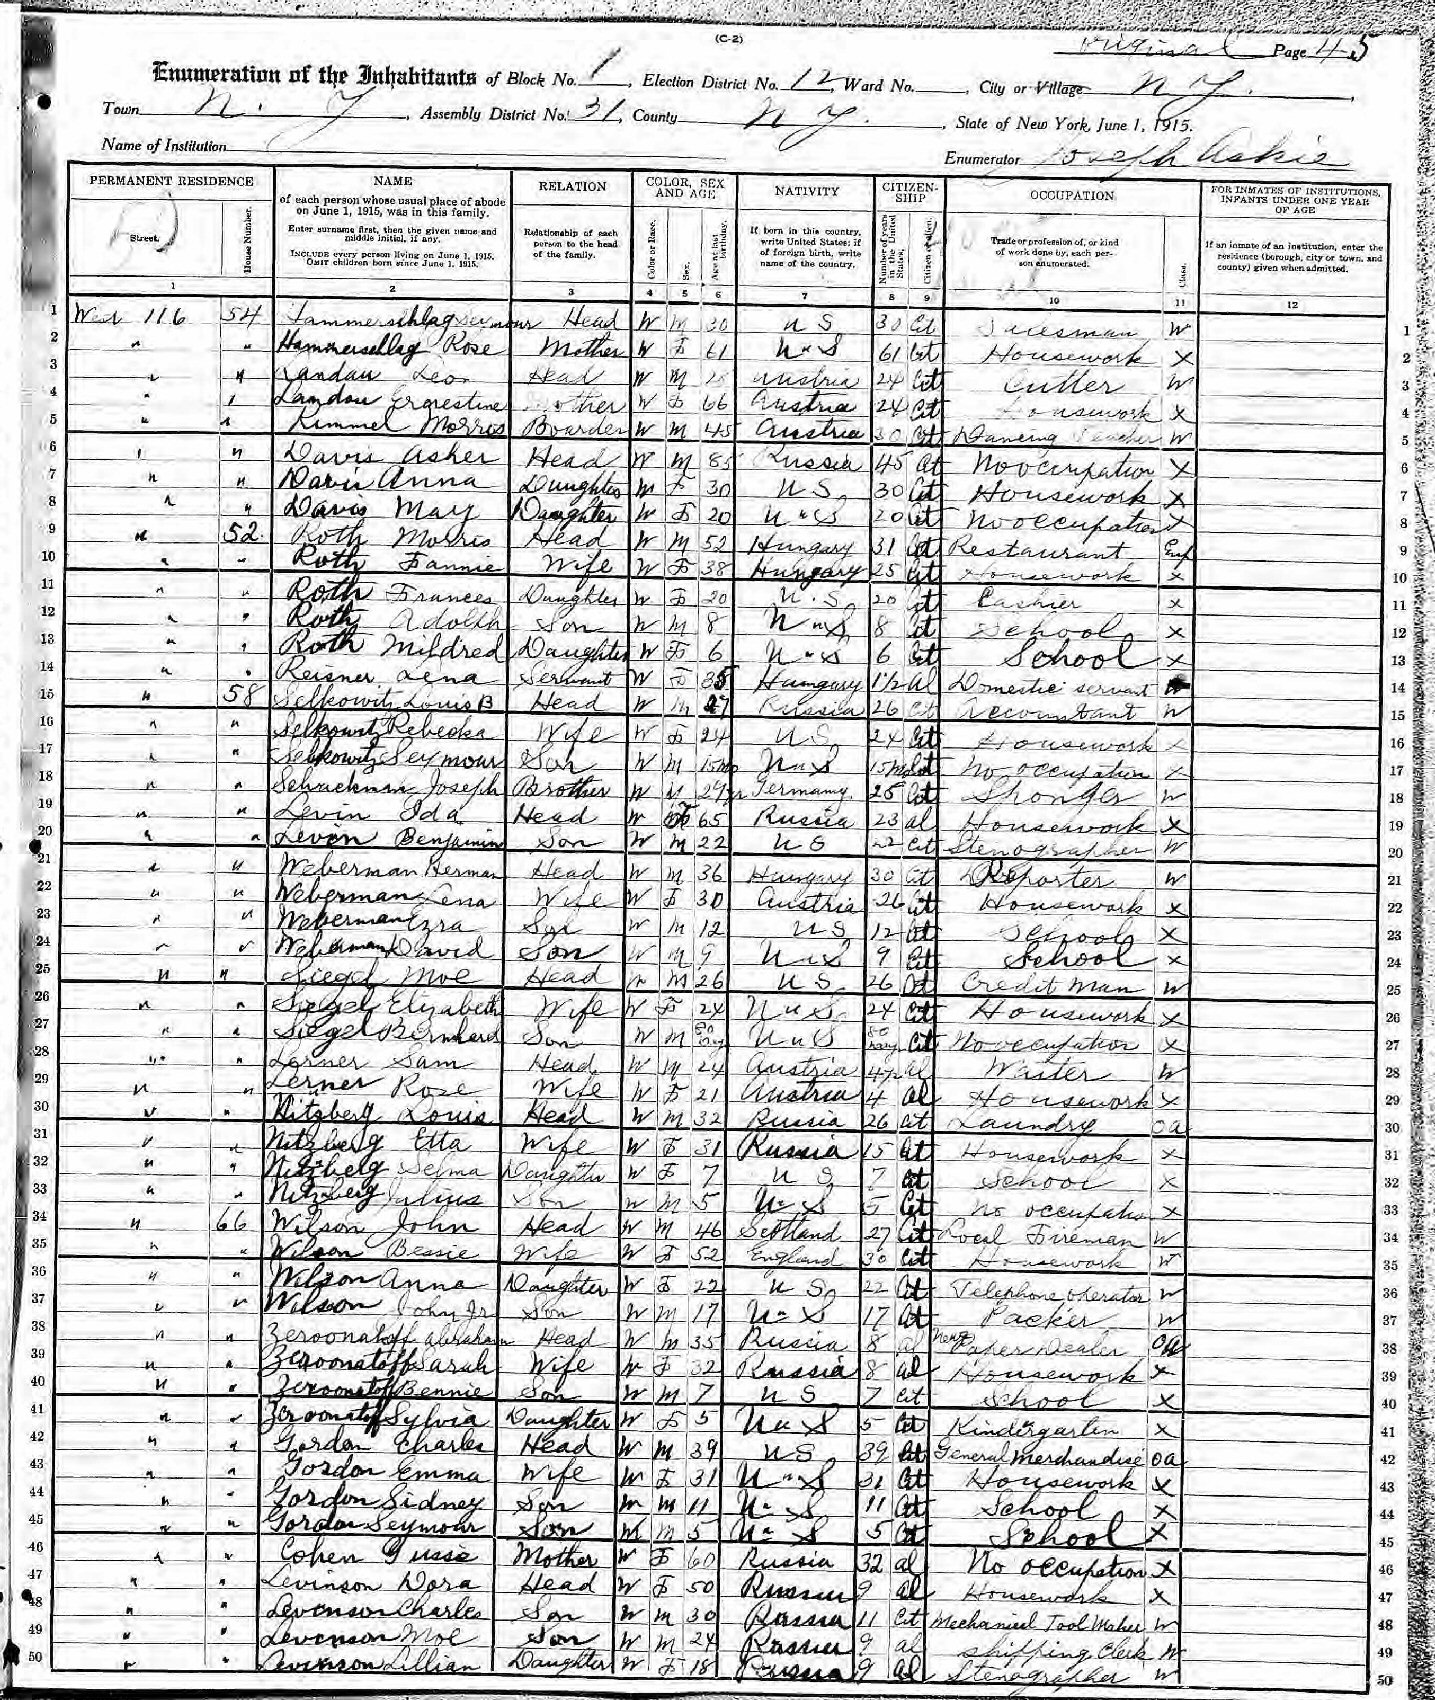 (C-2)
original Page 45
Enumeration of the Inhabitants of Block No. 1, Election District No. 12, Ward No. , City or Village N Y.
Town N. Y, Assembly District No. 31, County N Y., State of New York, June 1, 1915.
Name of Institution Enumerator Joseph Askie
PERMANENT RESIDENCE NAME RELATION COLOR, SEX AND AGE NATIVITY CITIZENSHIP OCCUPATION FOR INMATES OF INSTITUTIONS, INFANTS UNDER ONE YEAR OF AGE
Street. House Number. of each person whose usual place of abode on June 1, 1915, was in this family. Enter surname first, then the given name and middle initial, if any. INCLUDE every person living on June 1, 1915. OMIT children born since June 1, 1915. Relationship of each person to the head of the family. Color or Race. Sex. Age at last birthday. If born in this country, write United States; if of foreign birth, write name of the country. Number of years in the United States. Citizen or alien. Trade or profession of, or kind of work done by, each person enumerated. Class. If an inmate of an institution, enter the residence (borough, city or town, and county) given when admitted.
1 2 3 4 5 6 7 8 9 10 11 12
1 West 116 54 Hammerschlag Seymour Head W M 30 U S 30 Cit Salesman W 1
2 " " Hammerschlag Rose Mother W F 61 U " S 61 Cit Housework X 2
3 " " Landau Leo Head W M 25 Austria 24 Cit Cutter W 3
4 " " Landau Ernestine Mother W F 66 Austria 24 Cit Housework X 4
5 " " Kimmel Morris Boarder W M 45 Austria 30 Cit Dancing Teacher W 5
6 " " Davis Asher Head W M 85 Russia 45 Cit No occupation X 6
7 " " Davis Anna Daughter W F 30 U S 30 Cit Housework X 7
8 " " Davis May Daughter W F 20 U " S 20 Cit No occupation X 8
9 " 52 Roth Morris Head W M 52 Hungary 31 Cit Restaurant Emp 9
10 " " Roth Fannie Wife W F 38 Hungary 25 Cit Housework X 10
11 " " Roth Frances Daughter W F 20 U. S 20 Cit Cashier X 11
12 " " Roth Adolph Son W M 8 U " S 8 Cit School X 12
13 " " Roth Mildred Daughter W F 6 U " S 6 Cit School X 13
14 " " Reisner Lena Servant W F 35 Hungary 1½ Al Domestic servant W 14
15 " 58 Selkowitz Louis B Head W M 27 Russia 26 Cit Accountant W 15
16 " " Selkowitz Rebecka Wife W F 24 U S 24 Cit Housework X 16
17 " " Selkowitz Seymour Son W M 15mo U " S 15mo Cit No occupation X 17
18 " " Schuckman Joseph Brother W M 29yr Germany 25 Cit Sponger W 18
19 " " Levin Ida Head W F 65 Russia 23 al Housework X 19
20 " " Levin Benjamin Son W M 22 U S 22 Cit Stenographer W 20
21 " " Weberman Herman Head W M 36 Hungary 30 Cit Reporter W 21
22 " " Weberman Lena Wife W F 30 Austria 26 Cit Housework X 22
23 " " Weberman Ezra Son W M 12 U S 12 Cit School X 23
24 " " Weberman David Son W M 9 U " S 9 Cit School X 24
25 " " Siegel Moe Head W M 26 U S 26 Cit Credit Man W 25
26 " " Siegel Elizabeth Wife W F 24 U " S 24 Cit Housework X 26
27 " " Siegel Bernhard Son W M 80 Day U " S 80 Days Cit No occupation X 27
28 " " Lerner Sam Head W M 24 Austria 4½ Al Waiter W 28
29 " " Lerner Rose Wife W F 21 Austria 4 Al Housework X 29
30 " " Nitzberg Louis Head W M 32 Russia 26 Cit Laundry OA 30
31 " " Nitzberg Etta Wife W F 31 Russia 15 Cit Housework X 31
32 " " Nitzberg Selma Daughter W F 7 U S 7 Cit School X 32
33 " " Nitzberg Julius Son W M 5 U " S 5 Cit No occupation X 33
34 " 66 Wilson John Head W M 46 Scotland 27 Cit Local Fireman W 34
35 " " Wilson Bessie Wife W F 52 England 30 Cit Housework W 35
36 " " Wilson Anna Daughter W F 22 U S 22 Cit Telephone operator W 36
37 " " Wilson John Jr Son W M 17 U " S 17 Cit Packer W 37
38 " " Zeroonatoff Abraham Head W M 35 Russia 8 al News Paper Dealer OA 38
39 " " Zeroonatoff Sarah Wife W F 32 Russia 8 al Housework X 39
40 " " Zeroonatoff Bennie Son W M 7 U S 7 Cit School X 40
41 " " Zeroonatoff Sylvia Daughter W F 5 U " S 5 Cit Kindergarten X 41
42 " " Gordon Charles Head W M 39 U S 39 Cit General Merchandise OA 42
43 " " Gordon Emma Wife W F 31 U " S 31 Cit Housework X 43
44 " " Gordon Sidney Son W M 11 U " S 11 Cit School X 44
45 " " Gordon Seymour Son W M 5 U " S 5 Cit School X 45
46 " " Cohen Gussie Mother W F 60 Russia 32 al No occupation X 46
47 " " Levinson Dora Head W F 50 Russia 9 al Housework X 47
48 " " Levenson Charles Son W M 30 Russia 11 Cit Mechanical Tool Maker W 48
49 " " Levenson Moe Son W M 24 Russia 9 al Shipping Clerk W 49
50 " " Levenson Lillian Daughter W F 18 Russia 9 al Stenographer W 50